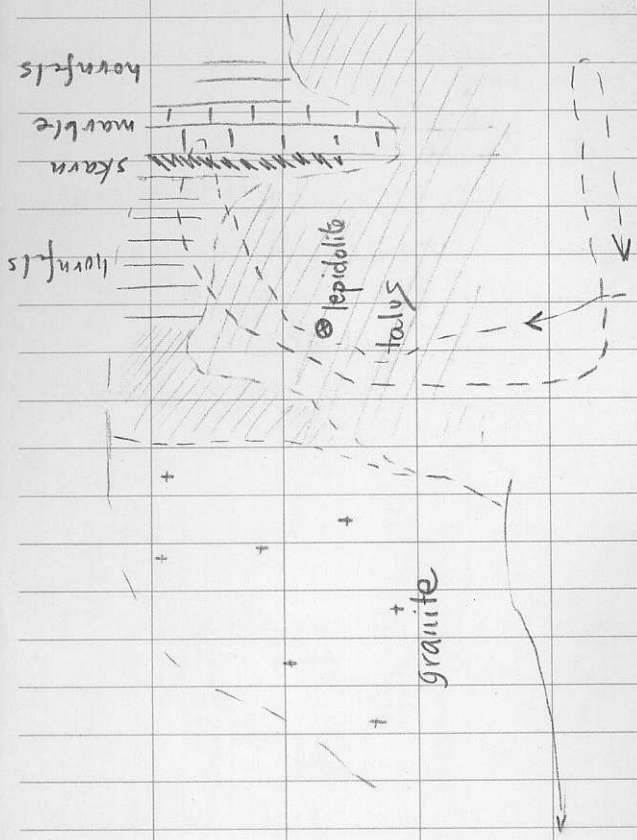 hornfels
marble
skarn
hornfels
lepidolite
talus
granite